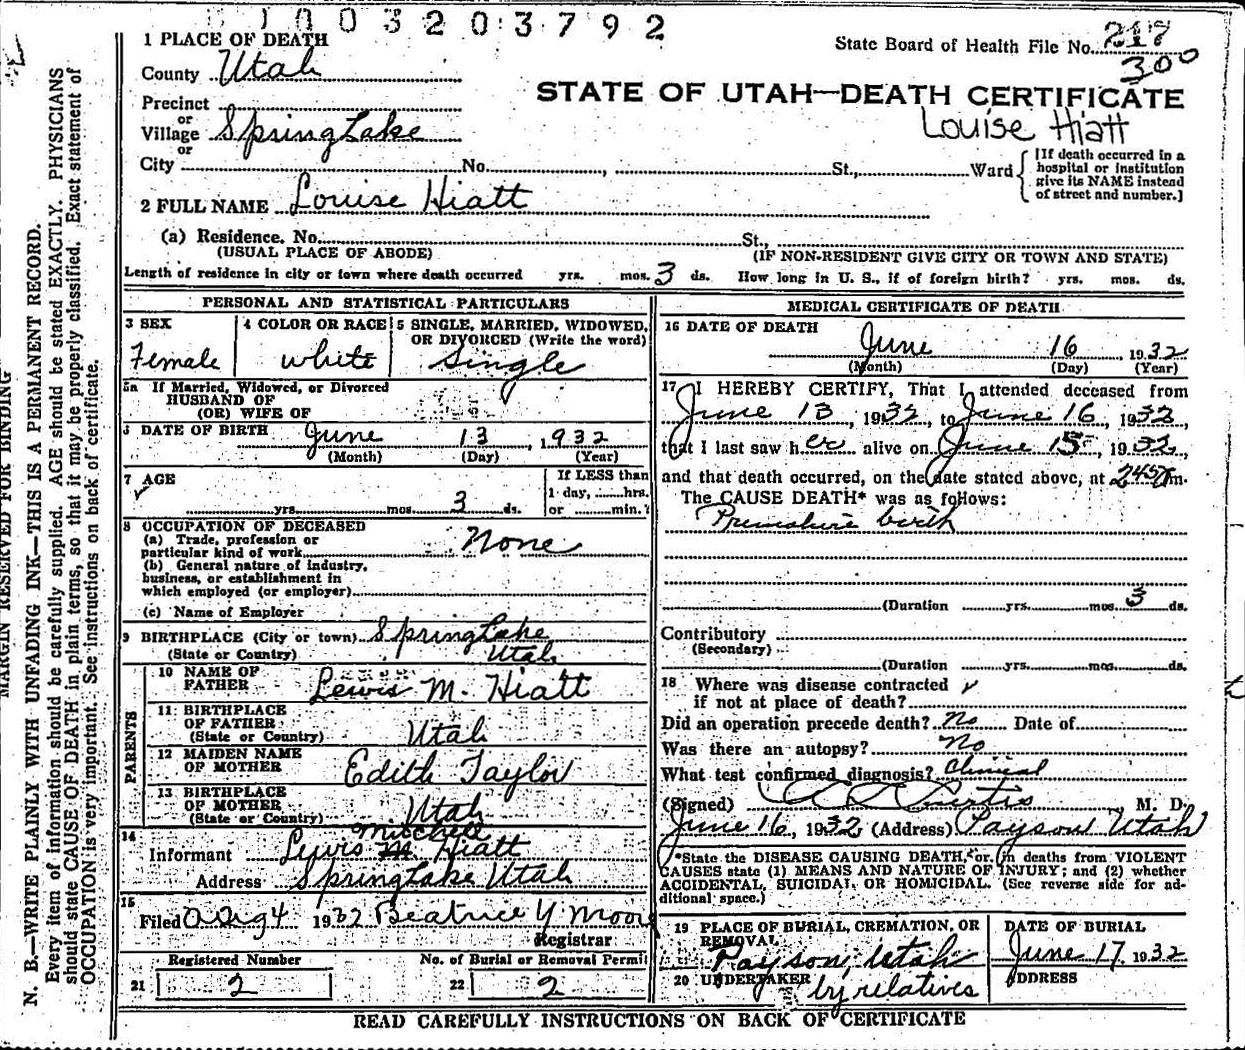 1003203792
State Board of Health File No. 217
300
STATE OF UTAH—DEATH CERTIFICATE
Louise Hiatt
1 PLACE OF DEATH
County Utah
Precinct
or
Village Spring Lake
or
City No. , St., Ward
[If death occurred in a
hospital or institution
give its NAME instead
of street and number.]
2 FULL NAME Louise Hiatt
(a) Residence. No. St.,
(USUAL PLACE OF ABODE) (IF NON-RESIDENT GIVE CITY OR TOWN AND STATE)
Length of residence in city or town where death occurred yrs. mos. 3 ds. How long in U. S., if of foreign birth? yrs. mos. ds.
PERSONAL AND STATISTICAL PARTICULARS
3 SEX
Female
4 COLOR OR RACE
white
5 SINGLE, MARRIED, WIDOWED,
OR DIVORCED (Write the word)
Single
5a If Married, Widowed, or Divorced
HUSBAND OF
(OR) WIFE OF
6 DATE OF BIRTH June 13, 1932
(Month) (Day) (Year)
7 AGE
yrs. mos. 3 ds.
If LESS than
1 day, hrs.
or min.?
8 OCCUPATION OF DECEASED
(a) Trade, profession or
particular kind of work None
(b) General nature of industry,
business, or establishment in
which employed (or employer)
(c) Name of Employer
9 BIRTHPLACE (City or town) Spring Lake
(State or Country) Utah
PARENTS
10 NAME OF
FATHER Lewis M. Hiatt
11 BIRTHPLACE
OF FATHER
(State or Country) Utah
12 MAIDEN NAME
OF MOTHER Edith Taylor
13 BIRTHPLACE
OF MOTHER
(State or Country) Utah
14
Mitchell
Informant Lewis M. Hiatt
Address Spring Lake Utah
15
Filed Aug 4 1932 Beatrice Y. Moore
Registrar
Registered Number No. of Burial or Removal Permit
21 2 22 2
MEDICAL CERTIFICATE OF DEATH
16 DATE OF DEATH
June 16, 1932
(Month) (Day) (Year)
17 I HEREBY CERTIFY, That I attended deceased from
June 13, 1932, to June 16, 1932,
that I last saw her alive on June 15, 1932,
and that death occurred, on the date stated above, at 245 m.
The CAUSE DEATH* was as follows:
Premature birth
(Duration yrs. mos. 3 ds.
Contributory
(Secondary)
(Duration yrs. mos. ds.
18 Where was disease contracted
if not at place of death?
Did an operation precede death? No Date of
Was there an autopsy? No
What test confirmed diagnosis? Clinical
(Signed) Curtis, M. D.
June 16, 1932, (Address) Payson Utah
*State the DISEASE CAUSING DEATH, or, in deaths from VIOLENT
CAUSES state (1) MEANS AND NATURE OF INJURY; and (2) whether
ACCIDENTAL, SUICIDAL OR HOMICIDAL. (See reverse side for ad-
ditional space.)
19 PLACE OF BURIAL, CREMATION, OR
REMOVAL
Payson, Utah
DATE OF BURIAL
June 17, 1932
20 UNDERTAKER
by relatives
ADDRESS
READ CAREFULLY INSTRUCTIONS ON BACK OF CERTIFICATE
MARGIN RESERVED FOR BINDING
N. B.—WRITE PLAINLY WITH UNFADING INK—THIS IS A PERMANENT RECORD.
Every item of information should be carefully supplied. AGE should be stated EXACTLY. PHYSICIANS
should state CAUSE OF DEATH in plain terms, so that it may be properly classified. Exact statement of
OCCUPATION is very important. See instructions on back of certificate.